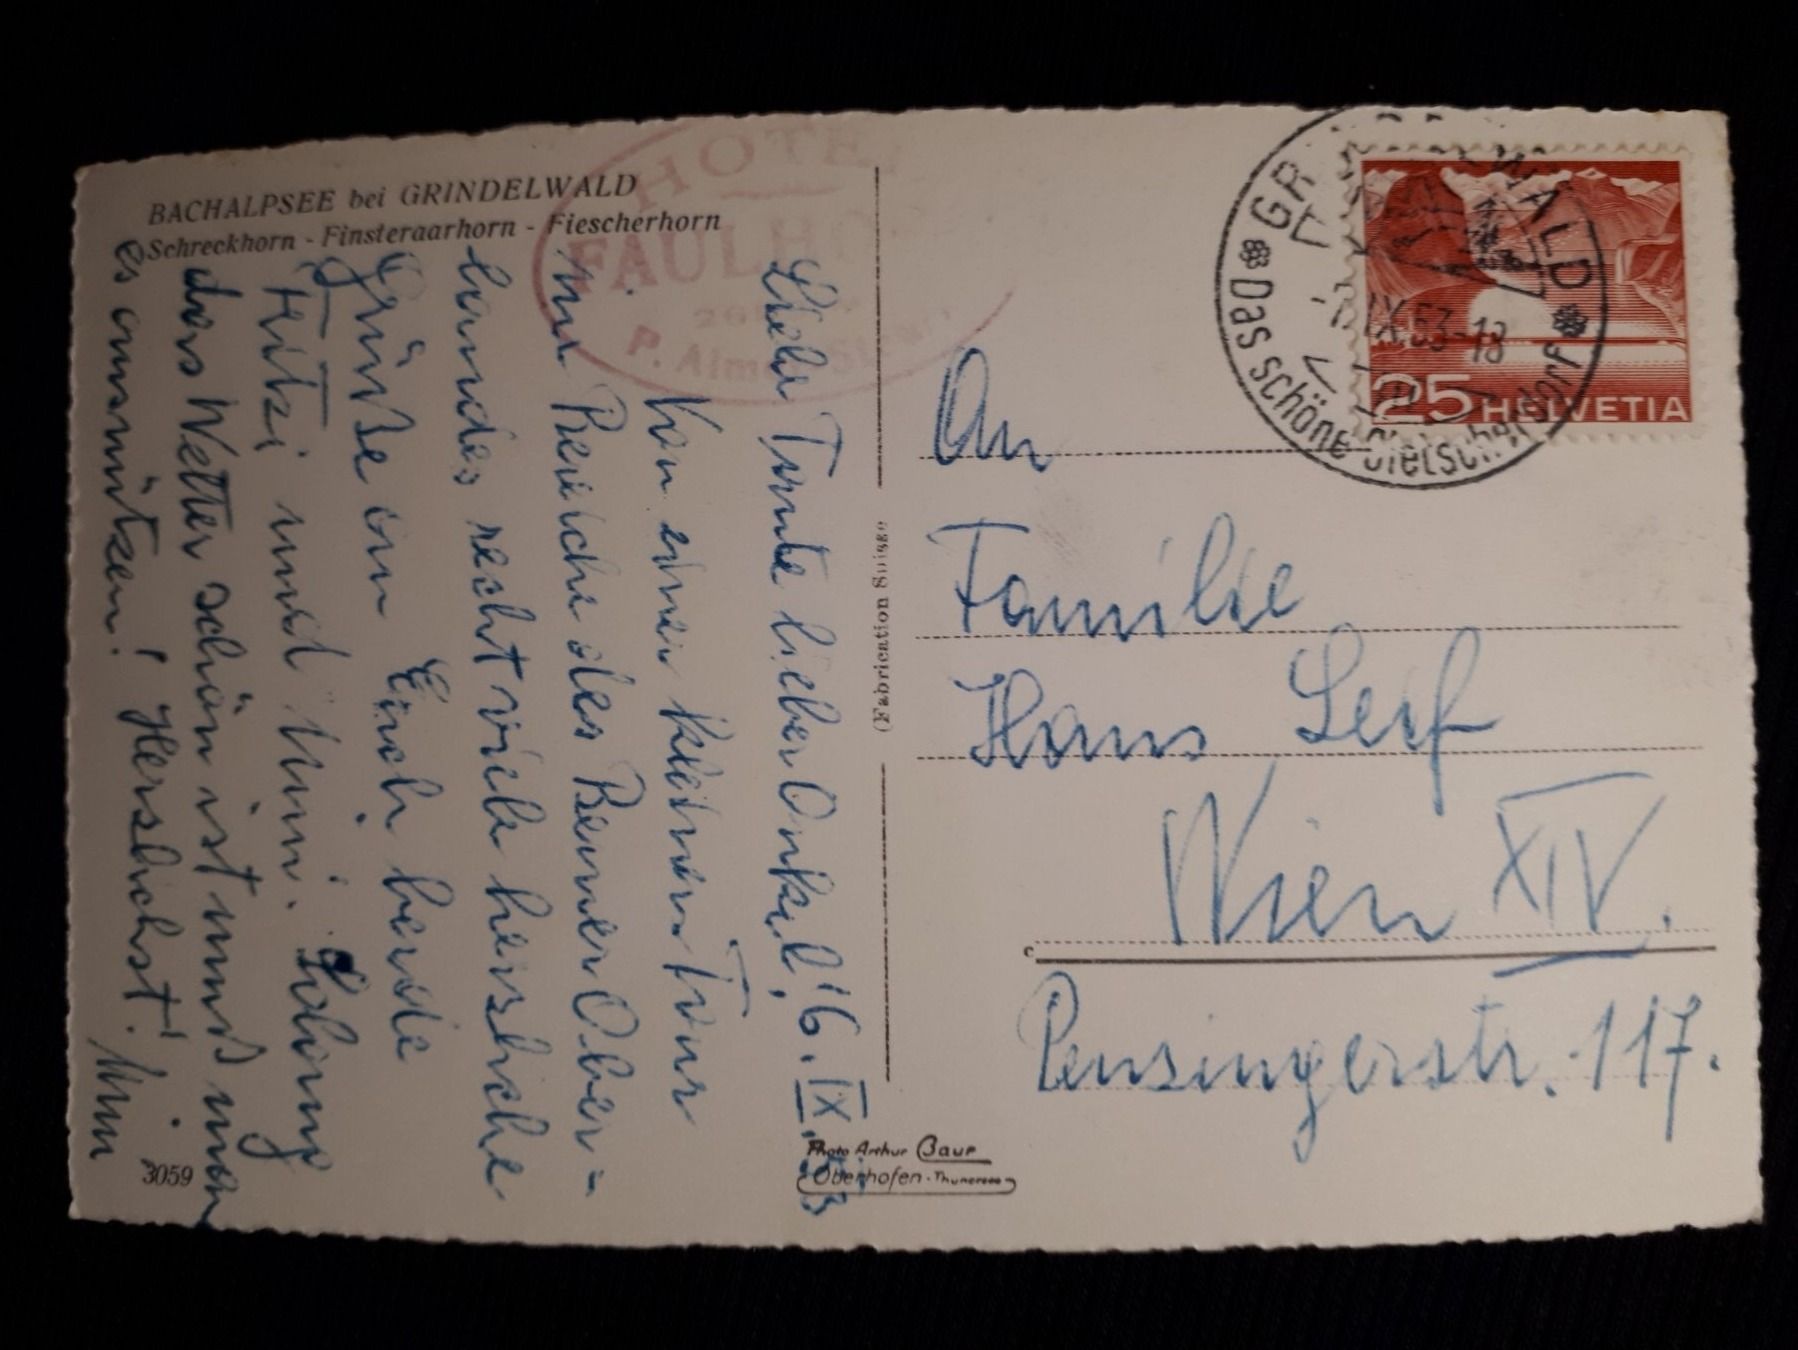 BACHALPSEE bei GRINDELWALD
Schreckhorn - Finsteraarhorn - Fiescherhorn
HOTEL
FAULHO
P.
Liebe Tante lieber Onkel! 6. IX. 53
Von einer kleinen Tour
im Bereiche des Berner Ober=
landes recht viele herzliche
Grüße an Euch beide
Fritzi und Mimi. Solang
das Wetter schön ist muß man
es ausnützen! Herzlichst
Mimi
3059
(Fabrication Suisse
Photo Arthur Baur
Oberhofen - Thunersee
GRINDELWALD
IX.53-18
Das schöne Gletscherdorf
25 HELVETIA
An
Familie
Hans
Wien XIV.
Penzingerstr. 117.